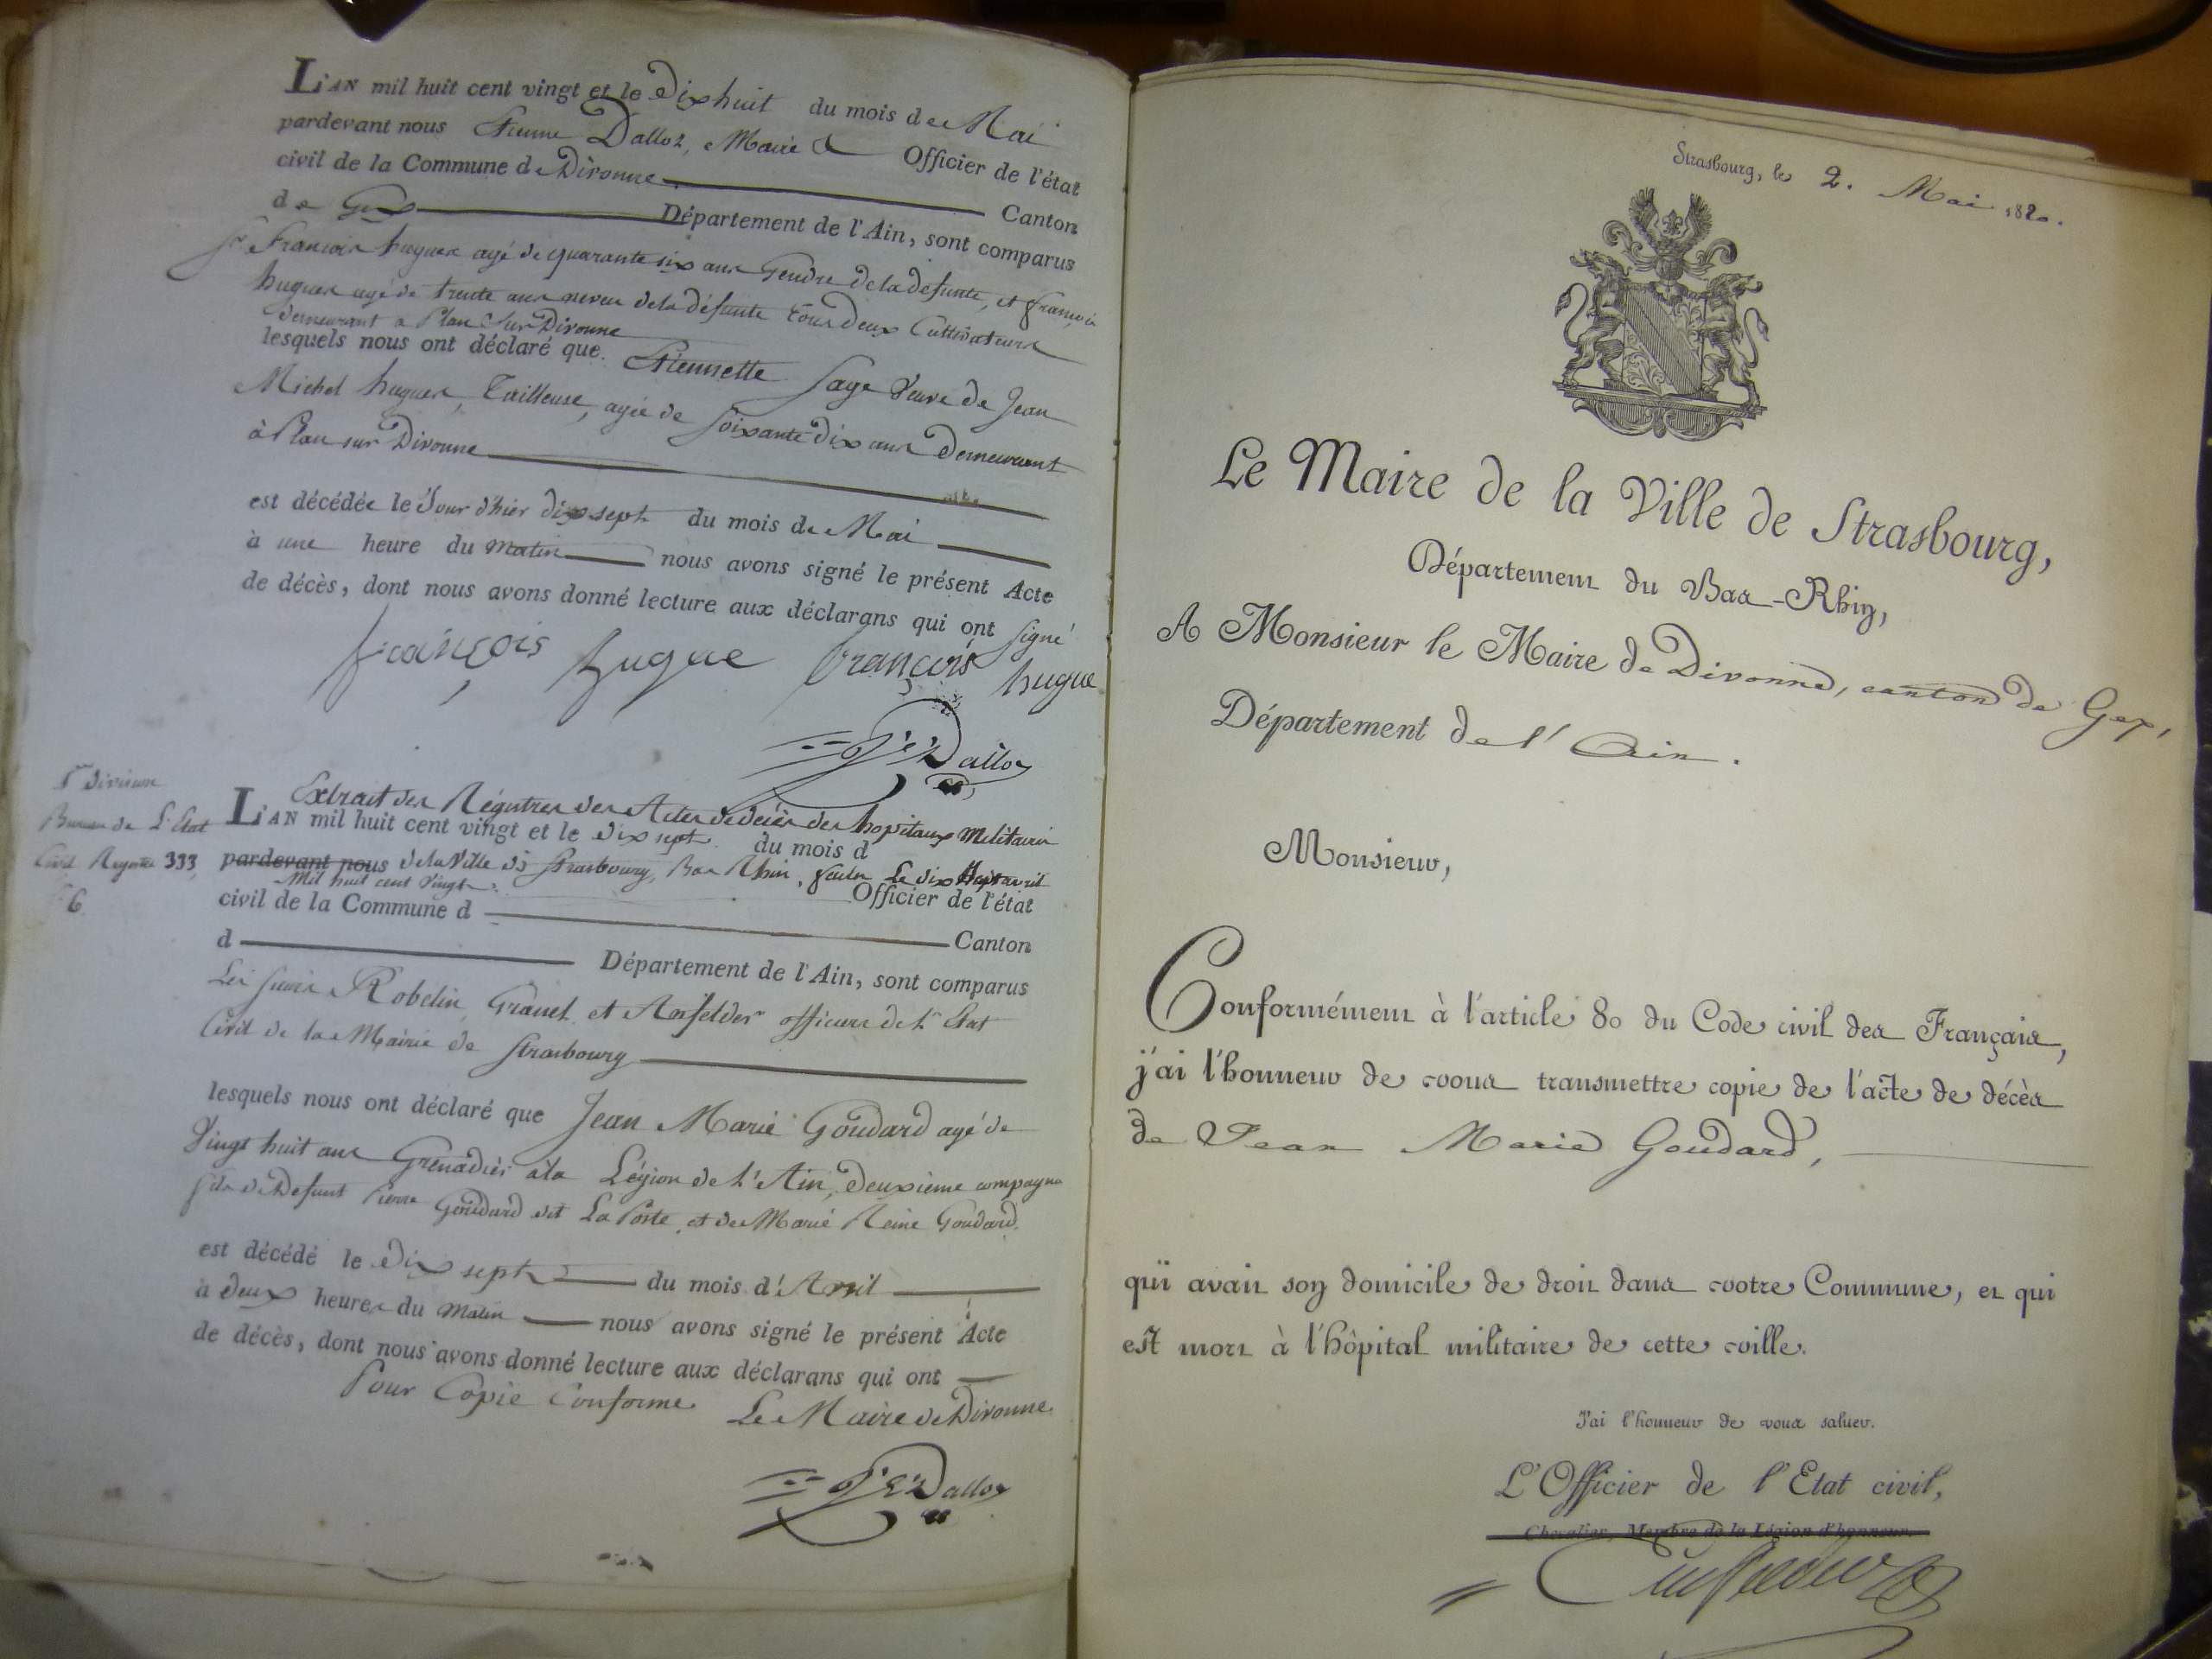 L'AN mil huit cent vingt et le Dix huit du mois de Mai
pardevant nous Etienne Dalloz, Maire & Officier de l'état
civil de la Commune de Divonne Canton
de Gex Département de l'Ain, sont comparus
Sr. Francois hugues agé de quarante six ans Gendre de la defunte, et francois
hugues agé de trente ans neveu de la défunte tous deux Cultivateurs
demeurant a Plan sur Divonne
lesquels nous ont déclaré que Etiennette Sage Veuve de Jean
Michel hugues, Tailleuse, agée de soixante dix ans Demeurant
à Plan sur Divonne
est décédée le Jour d'hier dix sept du mois de Mai
à une heure du matin nous avons signé le présent Acte
de décès, dont nous avons donné lecture aux déclarans qui ont signé
françois hugue françois hugue
Dalloz
1re Division
Bureau de L'Etat
Civil Registre 333
6
Extrait des Régistres des Actes de décès des hopitaux Militaires
L'AN mil huit cent vingt et le dix sept du mois d
pardevant nous de la Ville de Strasbourg, Bas Rhin, Le dix sept avril
Mil huit cent vingt Officier de l'état
civil de la Commune d
d Canton
Département de l'Ain, sont comparus
Les sieurs Robelin, et officiers de L'Etat
Civil de la Mairie de Strasbourg
lesquels nous ont déclaré que Jean Marie Goudard agé de
Vingt huit ans Grenadier à la Légion de L'Ain, deuxieme compagnie
fils de Defunt Pierre Goudard dit La Poste, et de Marie Reine Goudard.
est décédé le Dix sept du mois d'Avril
à deux heures du matin nous avons signé le présent Acte
de décès, dont nous avons donné lecture aux déclarans qui ont
Pour Copie Conforme Le Maire de Divonne
Dalloz
Strasbourg, le 2. Mai 1820.
Le Maire de la Ville de Strasbourg,
Département du Bas-Rhin,
A Monsieur le Maire de Divonne, canton de Gex,
Département de l'Ain.
Monsieur,
Conformément à l'article 80 du Code civil des Français,
j'ai l'honneur de vous transmettre copie de l'acte de décès
de Jean Marie Goudard,
qui avait son domicile de droit dans votre Commune, et qui
est mort à l'hôpital militaire de cette ville.
J'ai l'honneur de vous saluer.
L'Officier de l'Etat civil,
Chevalier, Membre de la Légion d'honneur.